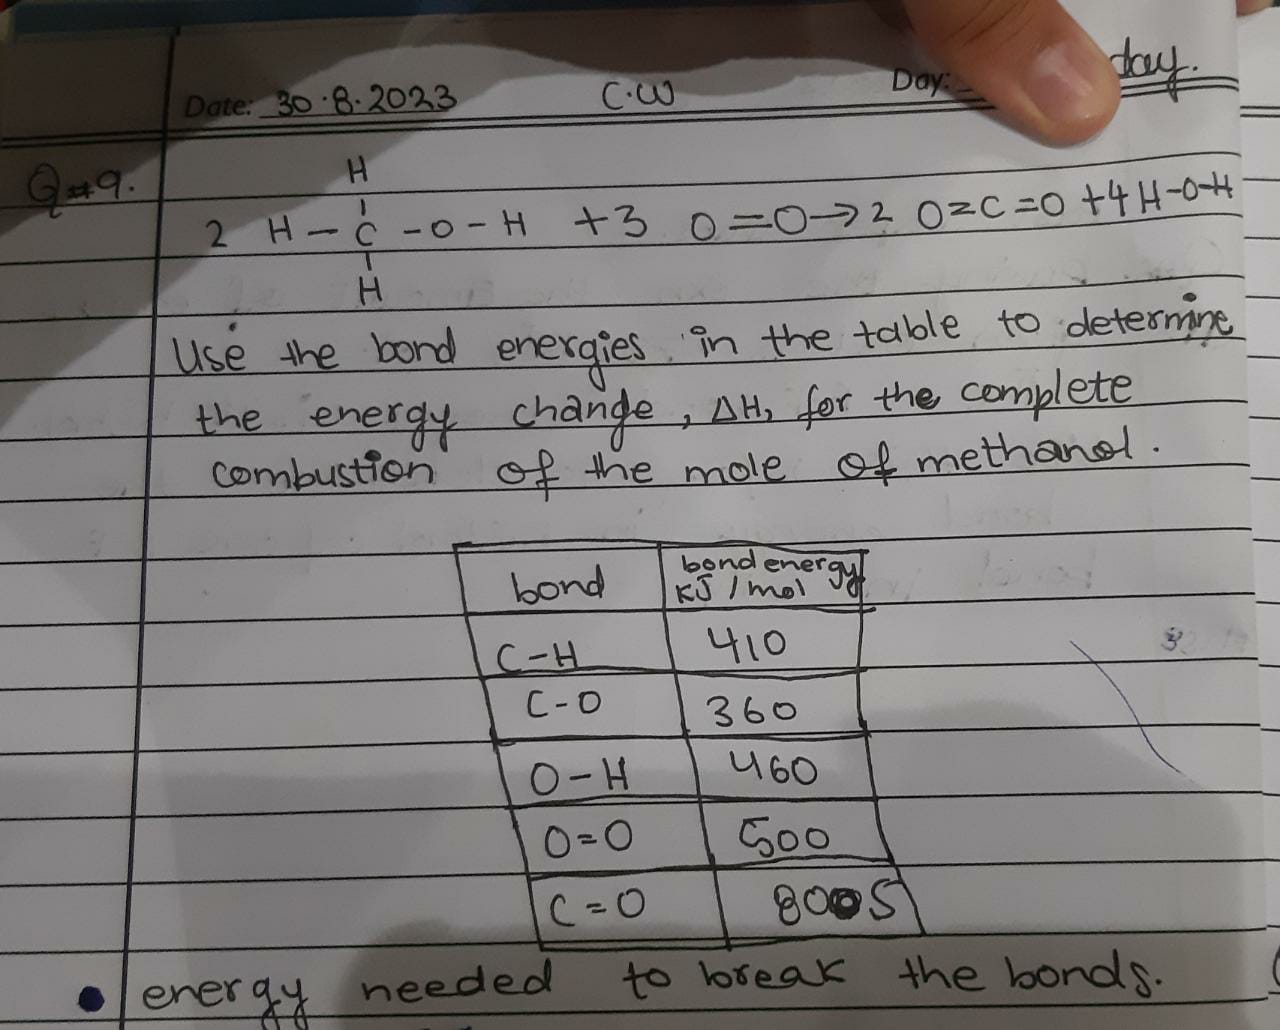 Date: 30.8.2023 C.W Day: day.
Q#9.
H
2 H-C-O-H +3 O=O→2 O=C=O +4 H-O-H
H
Use the bond energies in the table to determine
the energy change, ΔH, for the complete
combustion of the mole of methanol.
bond bond energy
KJ/mol
C-H 410
C-O 360
O-H 460
O=O 500
C=O 805
• energy needed to break the bonds.